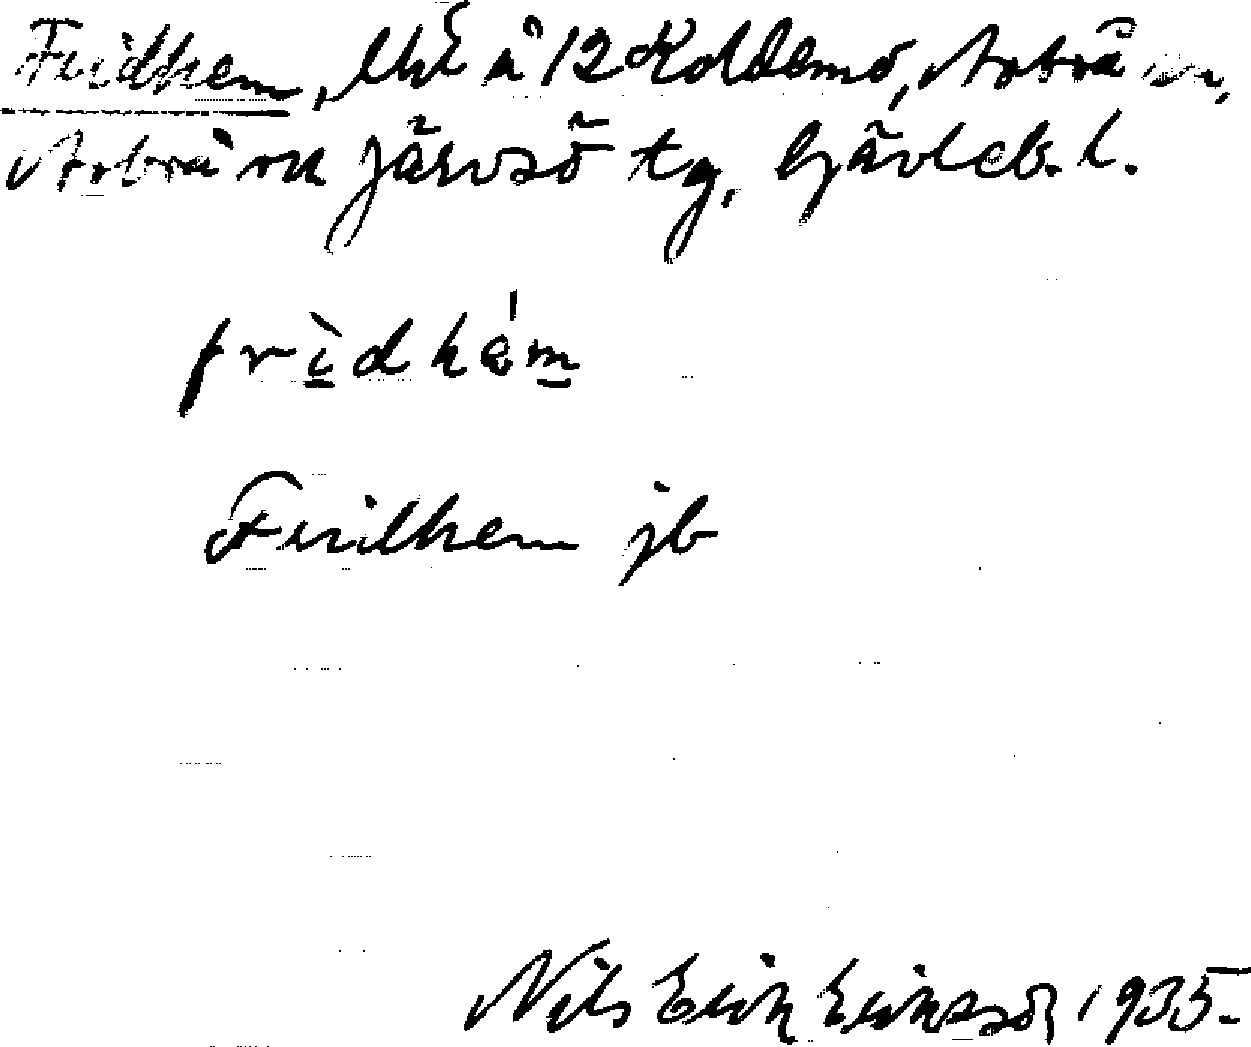 Fridhem, lht å 12 Koldemo, Arbrå sn,
Arbrå ock Järvsö tg, Gävleb. l.
fri̱dhem̱
Fridhem jb
Nils Erik Eriksson 1935.